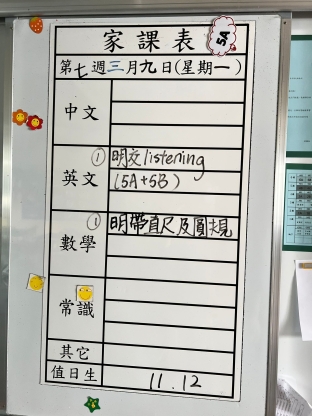 家課表
5A
第七週三月九日(星期一)
中文
英文
① 明交listening
(5A+5B)
數學
① 明帶直尺及圓規
常識
其它
值日生
11.12